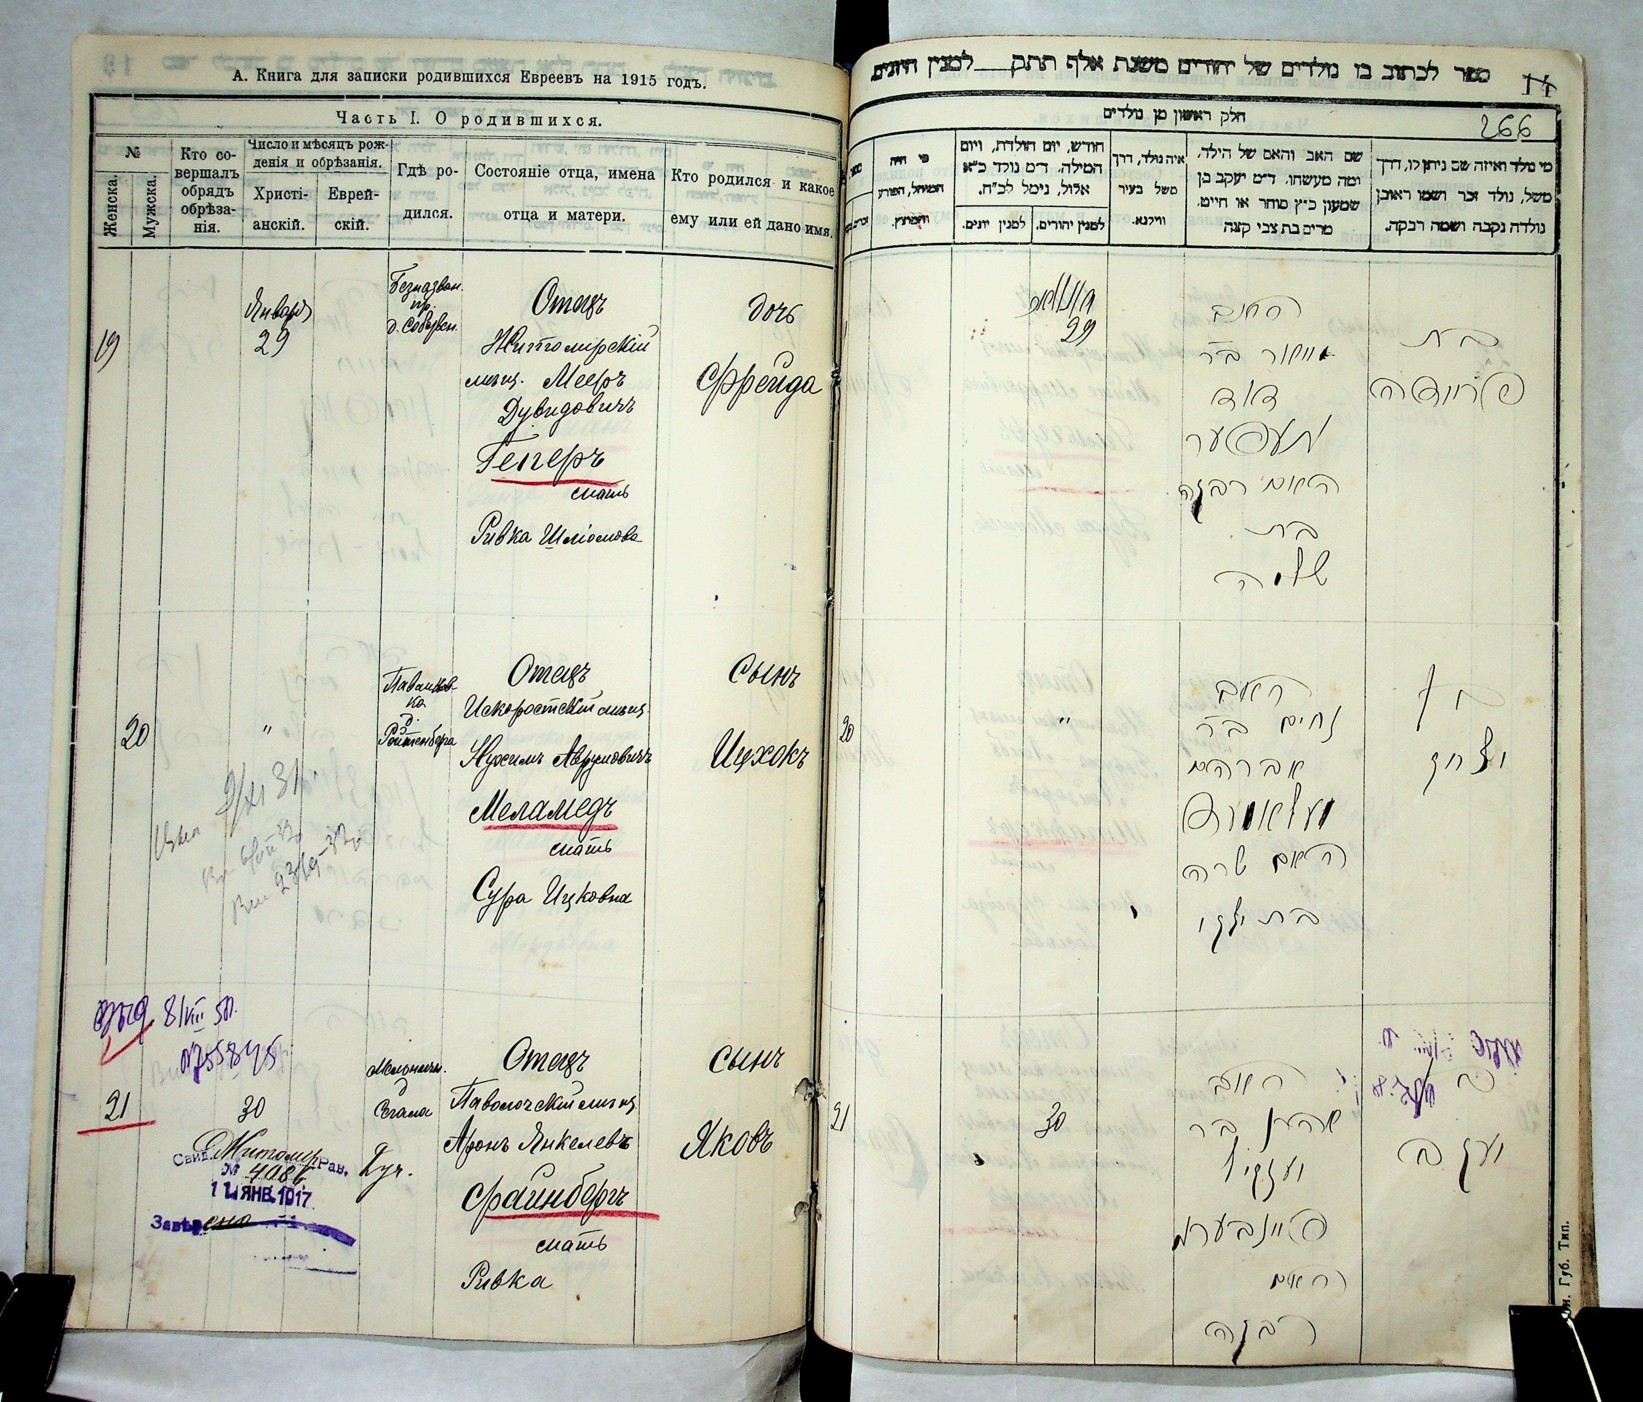 А. Книга для записки родившихся Евреевъ на 1915 годъ.
Часть I. О родившихся.
№
Женска.
Мужска.
Кто со-
вершалъ
обрядъ
обрѣза-
нія.
Число и мѣсяцъ рож-
денія и обрѣзанія.
Христі-
анскій.
Еврей-
скій.
Гдѣ ро-
дился.
Состояніе отца, имена
отца и матери.
Кто родился и какое
ему или ей дано имя.
19
Январь
29
Отецъ
Житомирскій
мѣщ. Мееръ
Дувидовичъ
Геперъ
мать
Ривка Шліомова
дочь
Фрейда
20
"
Отецъ
Искоростскій мѣщ.
Нухимъ Аврумовичъ
Меламедъ
мать
Сура Ицковна
сынъ
Ицхокъ
8/VIII 50.
21
30
Отецъ
Паволочскій мѣщ.
Аронъ Янкелевъ
Файнбергъ
мать
Ривка
сынъ
Яковъ
Свид. Житомир Рав.
№ 4086
ЯНВ. 1917
ספר לכתוב בו נולדים של יהודים משנת אלף תתק למנין היונים
14
חלק ראשון מן נולדים
266
מי נולד ואיזה שם ניתן לו, דרך
משל, נולד זכר ושמו ראובן
נולדה נקבה ושמה רבקה.
שם האב והאם של הילד,
ומה מעשהו, ד״מ יעקב בן
שמעון כ״ץ סוחר או חייט,
מרים בת צבי קצה
איה נולד, דרך
משל בעיר
ווילנא.
חודש, יום הולדת, ויום
המילה, ד״מ נולד כ״א
אלול, נימל לכ״ח.
למנין יהודים.
למנין יונים.
מי היה
המוהל, הפורע
והמוצץ.
29
האב
מאיר ב״ר
דוד
העפער
האם רבקה
בת
שלמה
בת
פריידה
20
"
האב
נחים ב״ר
אברהם
מעלאמעד
האם שרה
בת יצחק
בן
יצחק
21
30
האב
אהרן ב״ר
יעקב
פיינבערג
האם
רבקה
בן
יעקב
Губ. Тип.